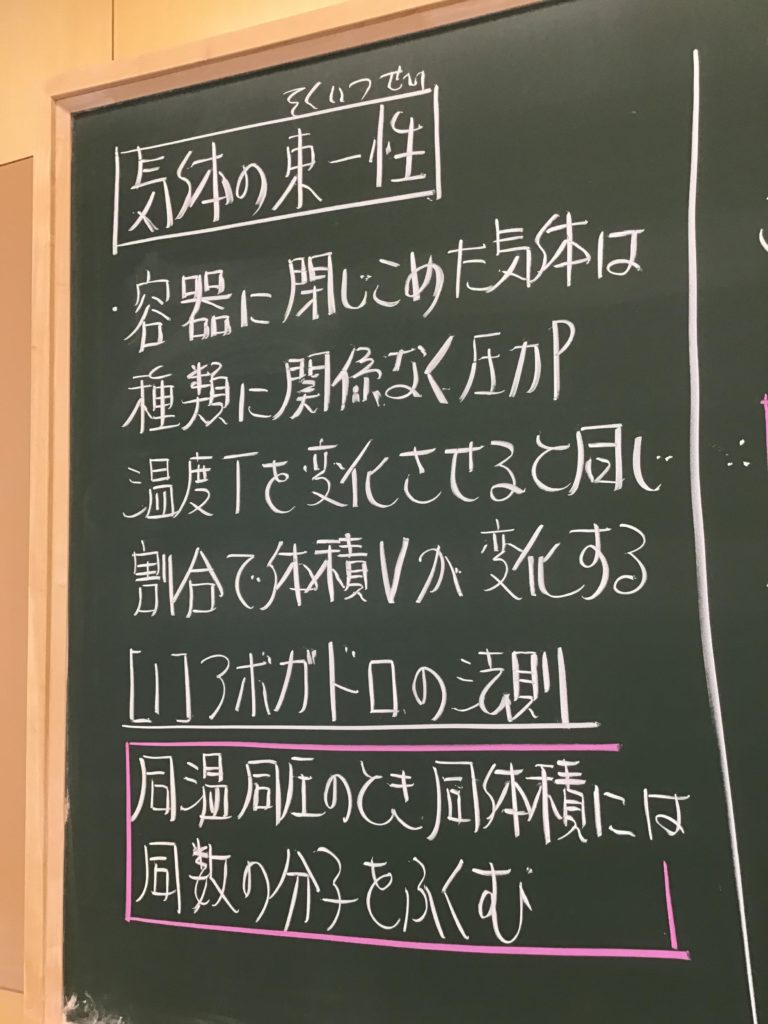 そくいつせい
気体の東一性
・容器に閉じこめた気体は
種類に関係なく圧力P
温度Tを変化させると同じ
割合で体積Vが変化する
[1]アボガドロの法則
同温同圧のとき同体積には
同数の分子をふくむ
∴